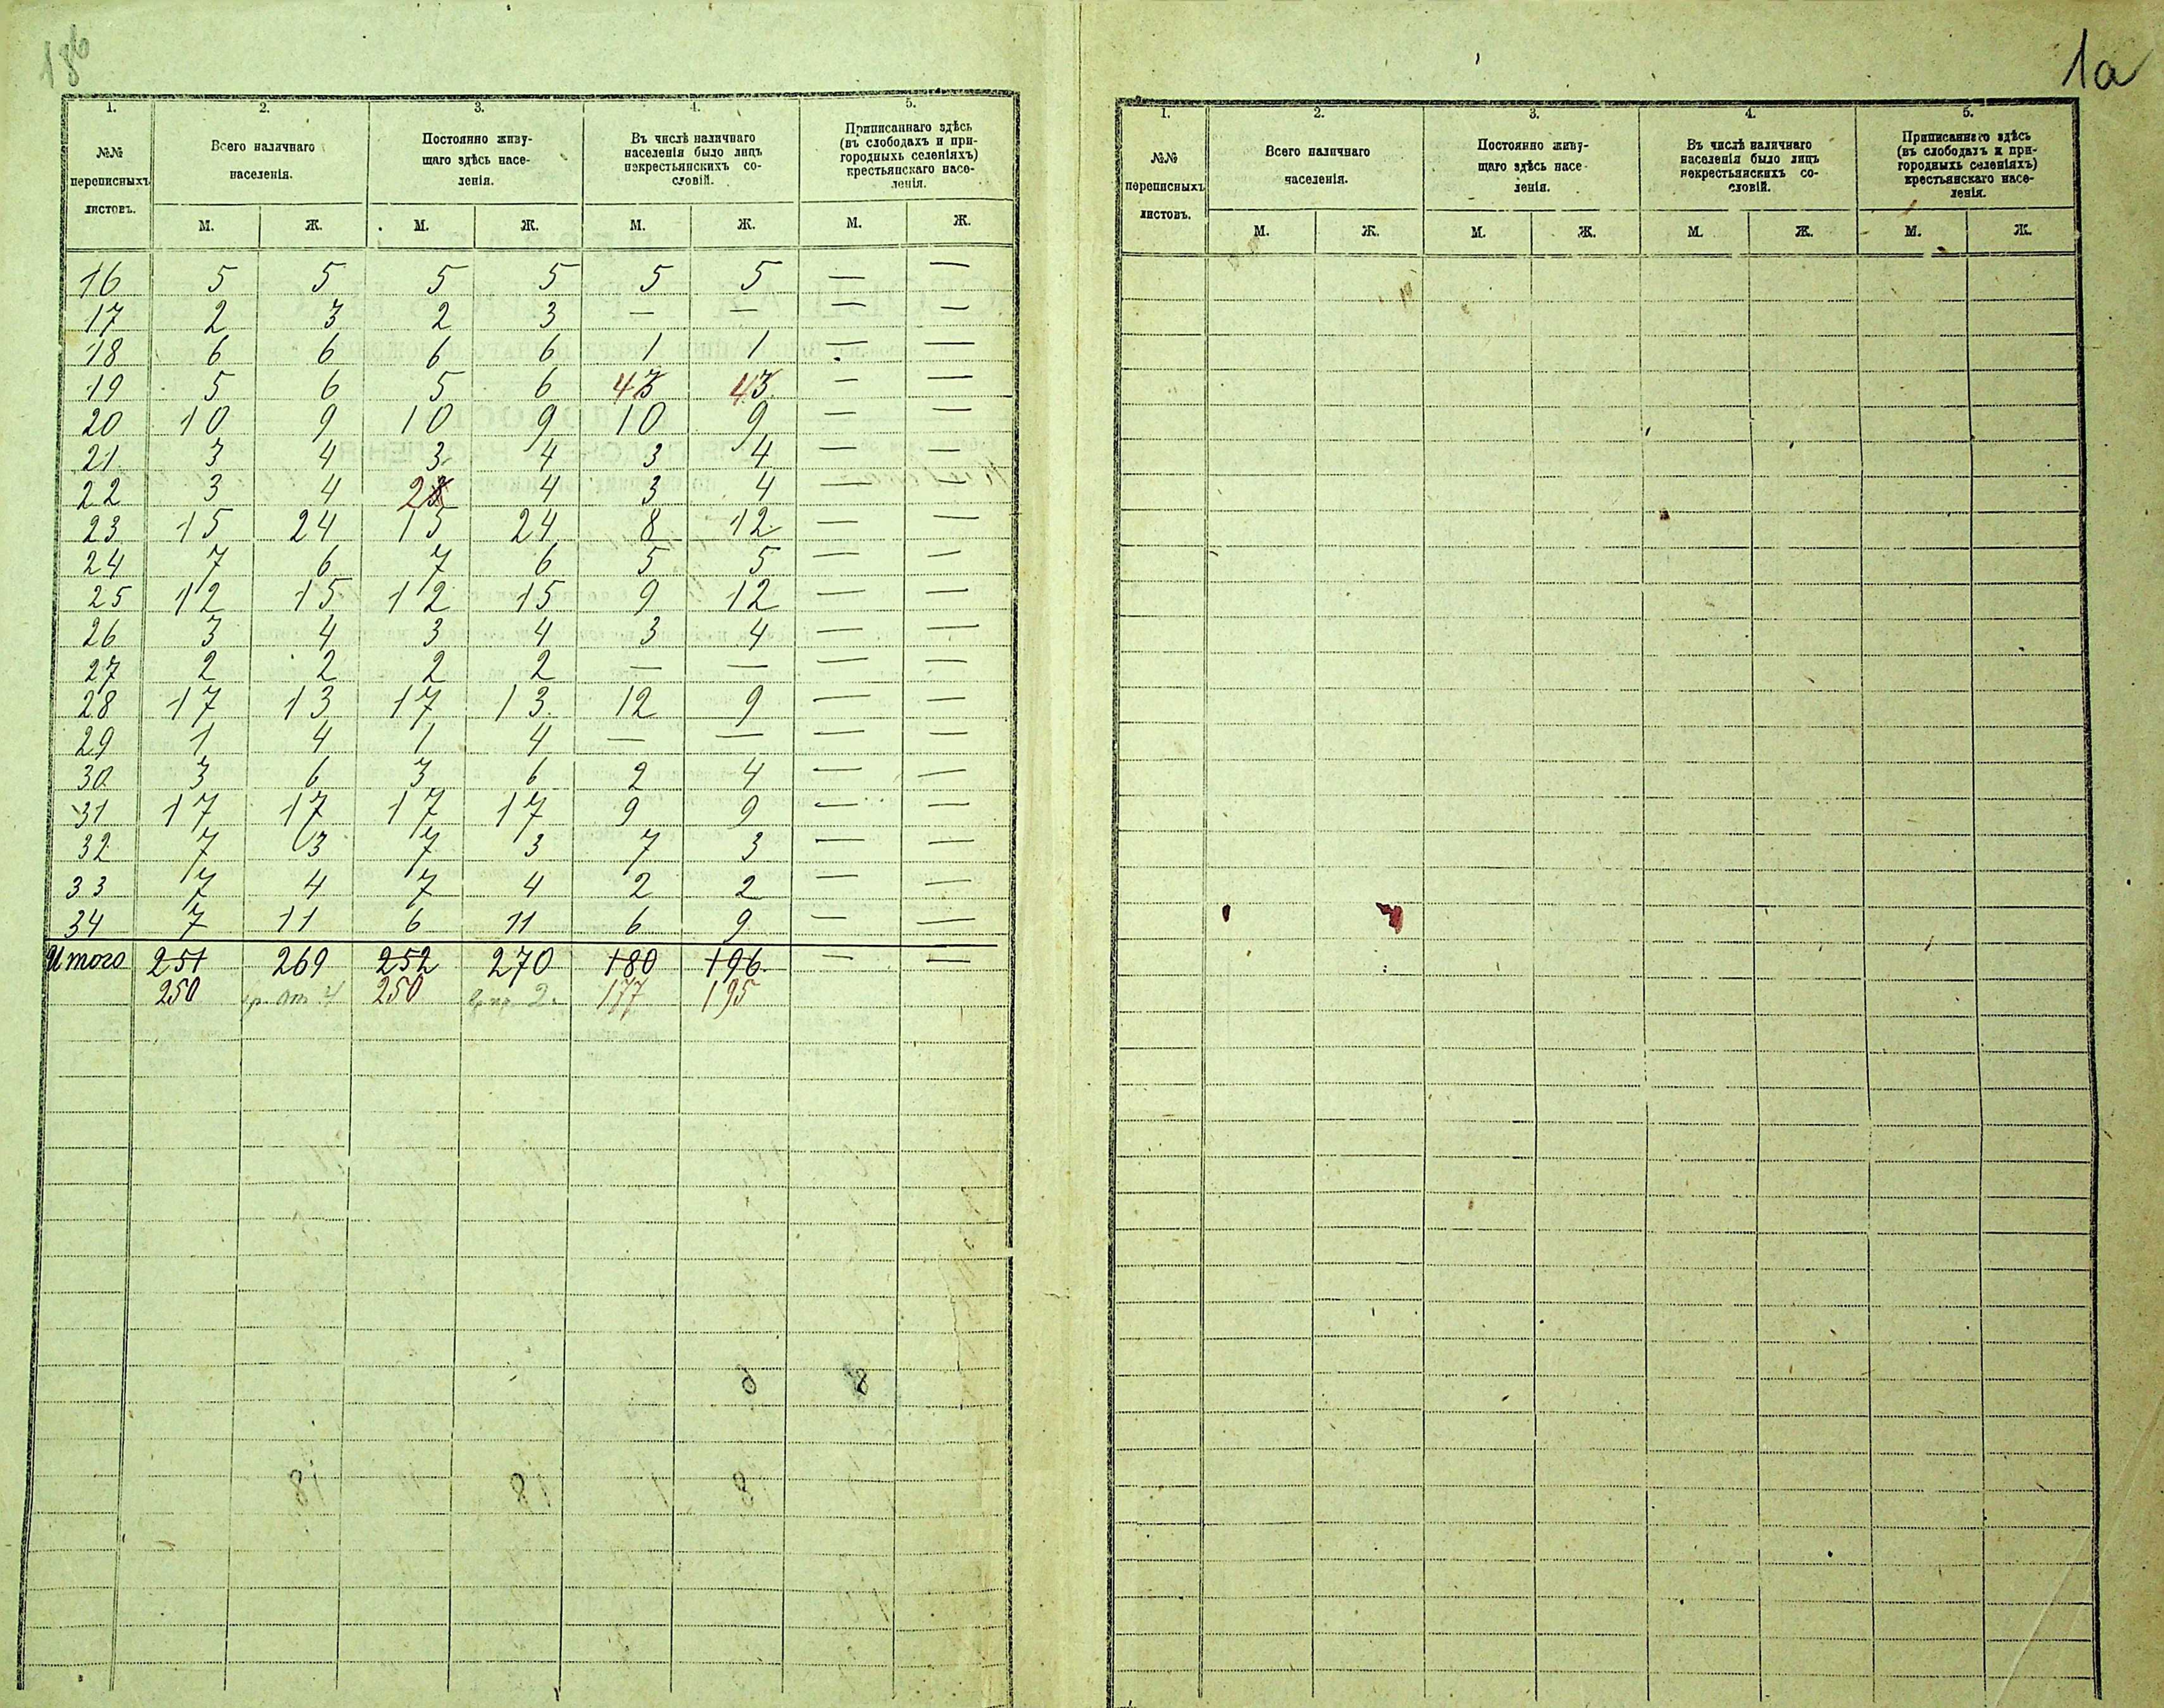 18б
1. 2. 3. 4. 5.
№№ переписныхъ листовъ.
Всего наличнаго населенія.
Постоянно живу-
щаго здѣсь насе-
ленія.
Въ числѣ наличнаго
населенія было лицъ
некрестьянскихъ со-
словій.
Приписаннаго здѣсь
(въ слободахъ и при-
городныхъ селеніяхъ)
крестьянскаго насе-
ленія.
М. Ж. М. Ж. М. Ж. М. Ж.
16 5 5 5 5 5 5 — —
17 2 3 2 3 — — — —
18 6 6 6 6 1 1 — —
19 5 6 5 6 43 43 — —
20 10 9 10 9 10 9 — —
21 3 4 3 4 3 4 — —
22 3 4 23 4 3 4 — —
23 15 24 15 24 8 12 — —
24 7 6 7 6 5 5 — —
25 12 15 12 15 9 12 — —
26 3 4 3 4 3 4 — —
27 2 2 2 2 — — — —
28 17 13 17 13 12 9 — —
29 1 4 1 4 — — — —
30 3 6 3 6 2 4 — —
31 17 17 17 17 9 9 — —
32 7 3 7 3 7 3 — —
33 7 4 7 4 2 2 — —
34 7 11 6 11 6 9 — —
Итого 251 269 252 270 180 196 — —
250 250 177 195
1а
1. 2. 3. 4. 5.
№№ переписныхъ листовъ.
Всего наличнаго населенія.
Постоянно живу-
щаго здѣсь насе-
ленія.
Въ числѣ наличнаго
населенія было лицъ
некрестьянскихъ со-
словій.
Приписаннаго здѣсь
(въ слободахъ и при-
городныхъ селеніяхъ)
крестьянскаго насе-
ленія.
М. Ж. М. Ж. М. Ж. М. Ж.